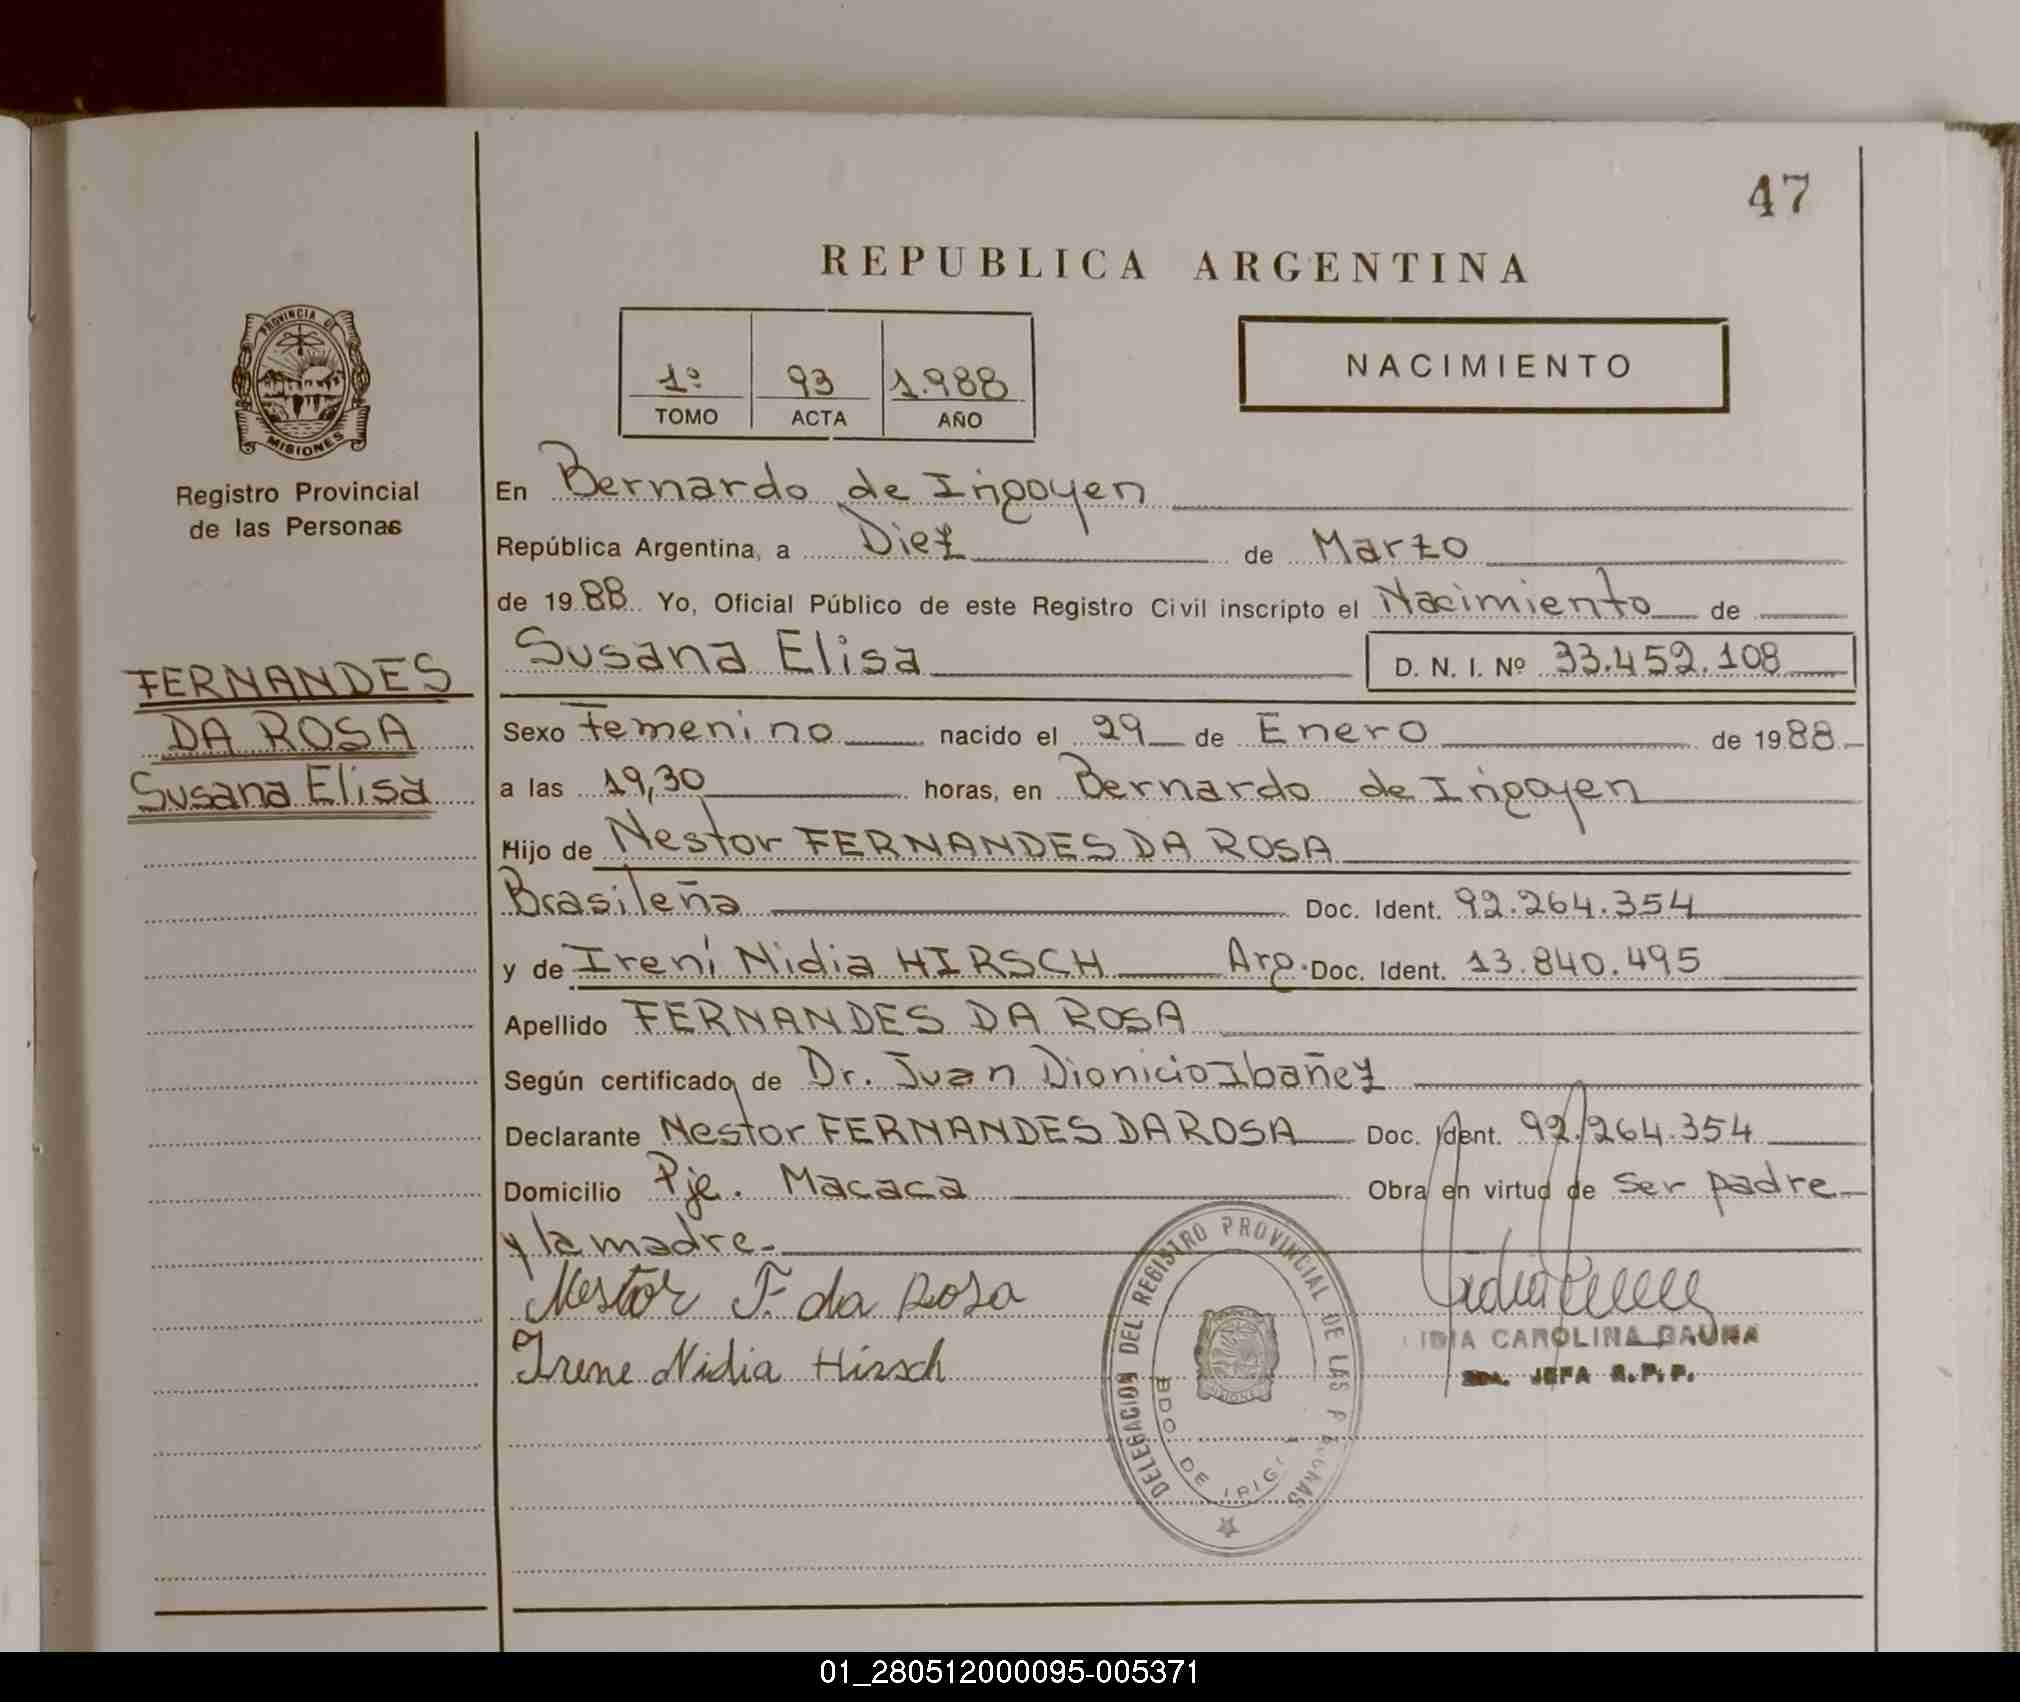 47
REPUBLICA ARGENTINA
PROVINCIA DE
MISIONES
Registro Provincial
de las Personas
1º 93 1.988
TOMO ACTA AÑO
NACIMIENTO
FERNANDES
DA ROSA
Susana Elisa
En Bernardo de Irigoyen
República Argentina, a Diez de Marzo
de 19 88 Yo, Oficial Público de este Registro Civil inscripto el Nacimiento de
Susana Elisa D. N. I. Nº 33.452.108
Sexo Femenino nacido el 29 de Enero de 19 88
a las 19,30 horas, en Bernardo de Irigoyen
Hijo de Nestor FERNANDES DA ROSA
Brasileña Doc. Ident. 92.264.354
y de Ireni Nidia HIRSCH Arg. Doc. Ident. 13.840.495
Apellido FERNANDES DA ROSA
Según certificado de Dr. Juan Dionicio Ibañez
Declarante Nestor FERNANDES DA ROSA Doc. Ident. 92.264.354
Domicilio Pje. Macaca Obra en virtud de ser padre
y la madre.
Nestor F. da Rosa
Irene Nidia Hirsch
DELEGACION DEL REGISTRO PROVINCIAL DE LAS
BDO DE IRIG
CAROLINA GAUNA
JEFA R.P.P.
01_280512000095-005371